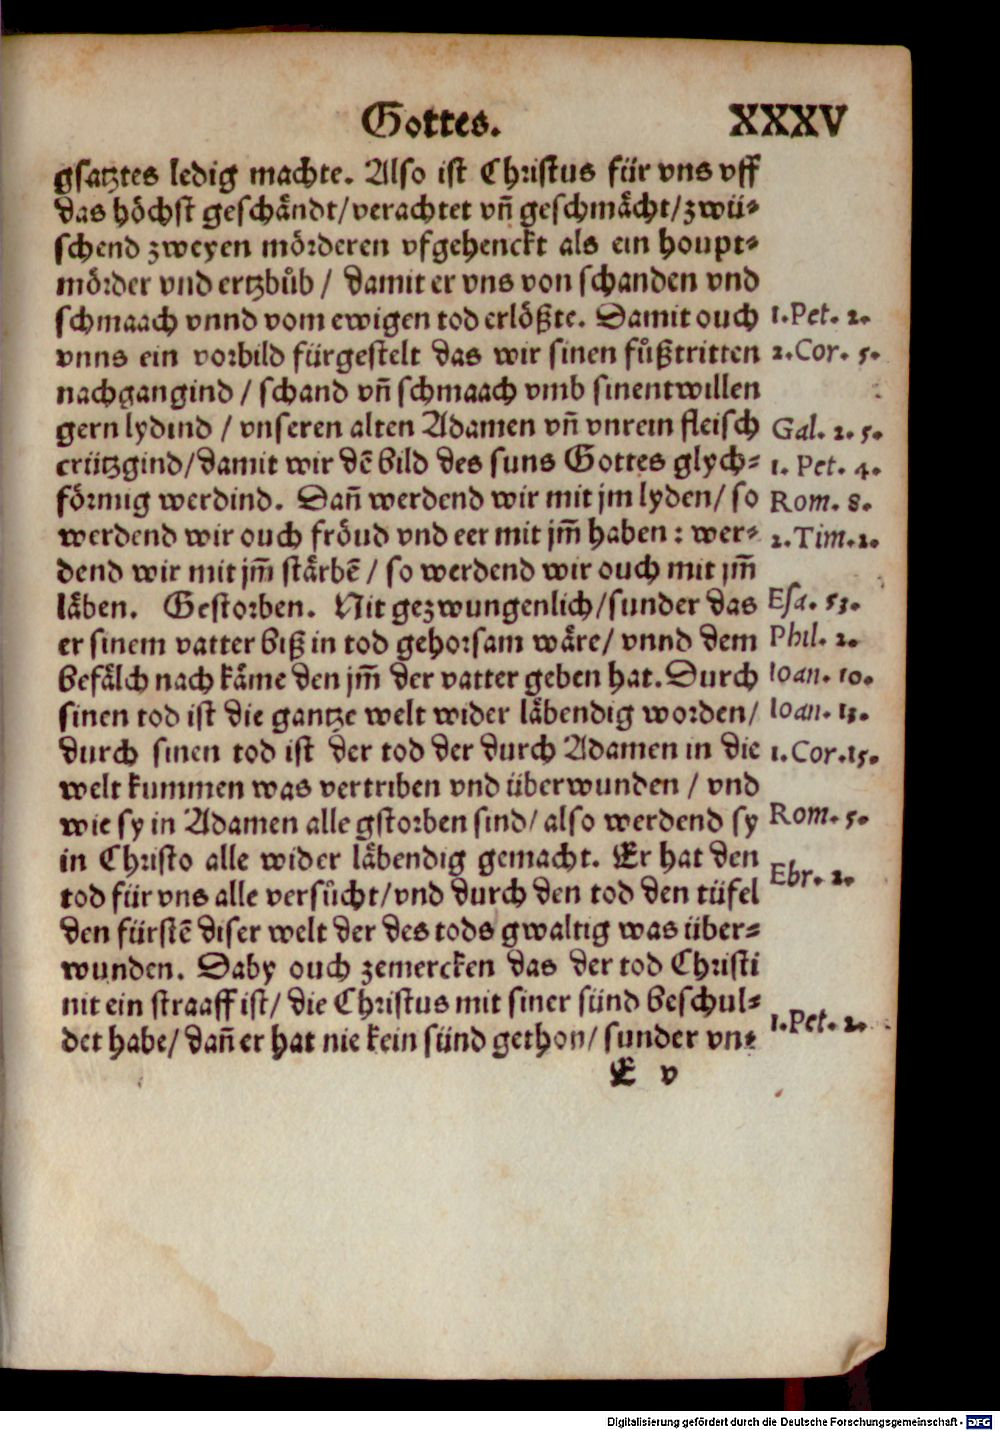 Gottes. XXXV
gsatztes ledig machte. Also ist Christus für vns vff
das höchst geschåndt/verachtet vñ geschmåcht/zwü-
schend zweyen mörderen vfgehenckt als ein houpt-
mörder vnd ertzbůb / damit er vns von schanden vnd
schmaach vnnd vom ewigen tod erlößte. Damit ouch 1.Pet. 2.
vnns ein vorbild fürgestelt das wir sinen fůßtritten 2.Cor. 5.
nachgangind / schand vñ schmaach vmb sinentwillen
gern lydind / vnseren alten Adamen vñ vnrein fleisch Gal. 2. 5.
crützgind/damit wir dē bild des suns Gottes glych- 1. Pet. 4.
förmig werdind. Dañ werdend wir mit jm lyden/ so Rom. 8.
werdend wir ouch fröud vnd eer mit jm̄ haben : wer- 2.Tim.2.
dend wir mit jm̄ stårbē / so werdend wir ouch mit jm̄
låben. Gestorben. Nit gezwungenlich/sunder das Esa. 53.
er sinem vatter biß in tod gehorsam wåre/ vnnd dem Phil. 2.
befålch nach kåme den jm̄ der vatter geben hat. Durch Ioan. 10.
sinen tod ist die gantze welt wider låbendig worden/ Ioan. 13.
durch sinen tod ist der tod der durch Adamen in die 1.Cor.15.
welt kummen was vertriben vnd überwunden / vnd
wie sy in Adamen alle gstorben sind/ also werdend sy Rom. 5.
in Christo alle wider låbendig gemacht. Er hat den
tod für vns alle versůcht/vnd durch den tod den tüfel Ebr. 2.
den fürstē diser welt der des tods gwaltig was über-
wunden. Daby ouch zemercken das der tod Christi
nit ein straaff ist/ die Christus mit siner sünd beschul-
det habe/ dañ er hat nie kein sünd gethon/ sunder vn- 1.Pet. 2.
E v
Digitalisierung gefördert durch die Deutsche Forschungsgemeinschaft - DFG